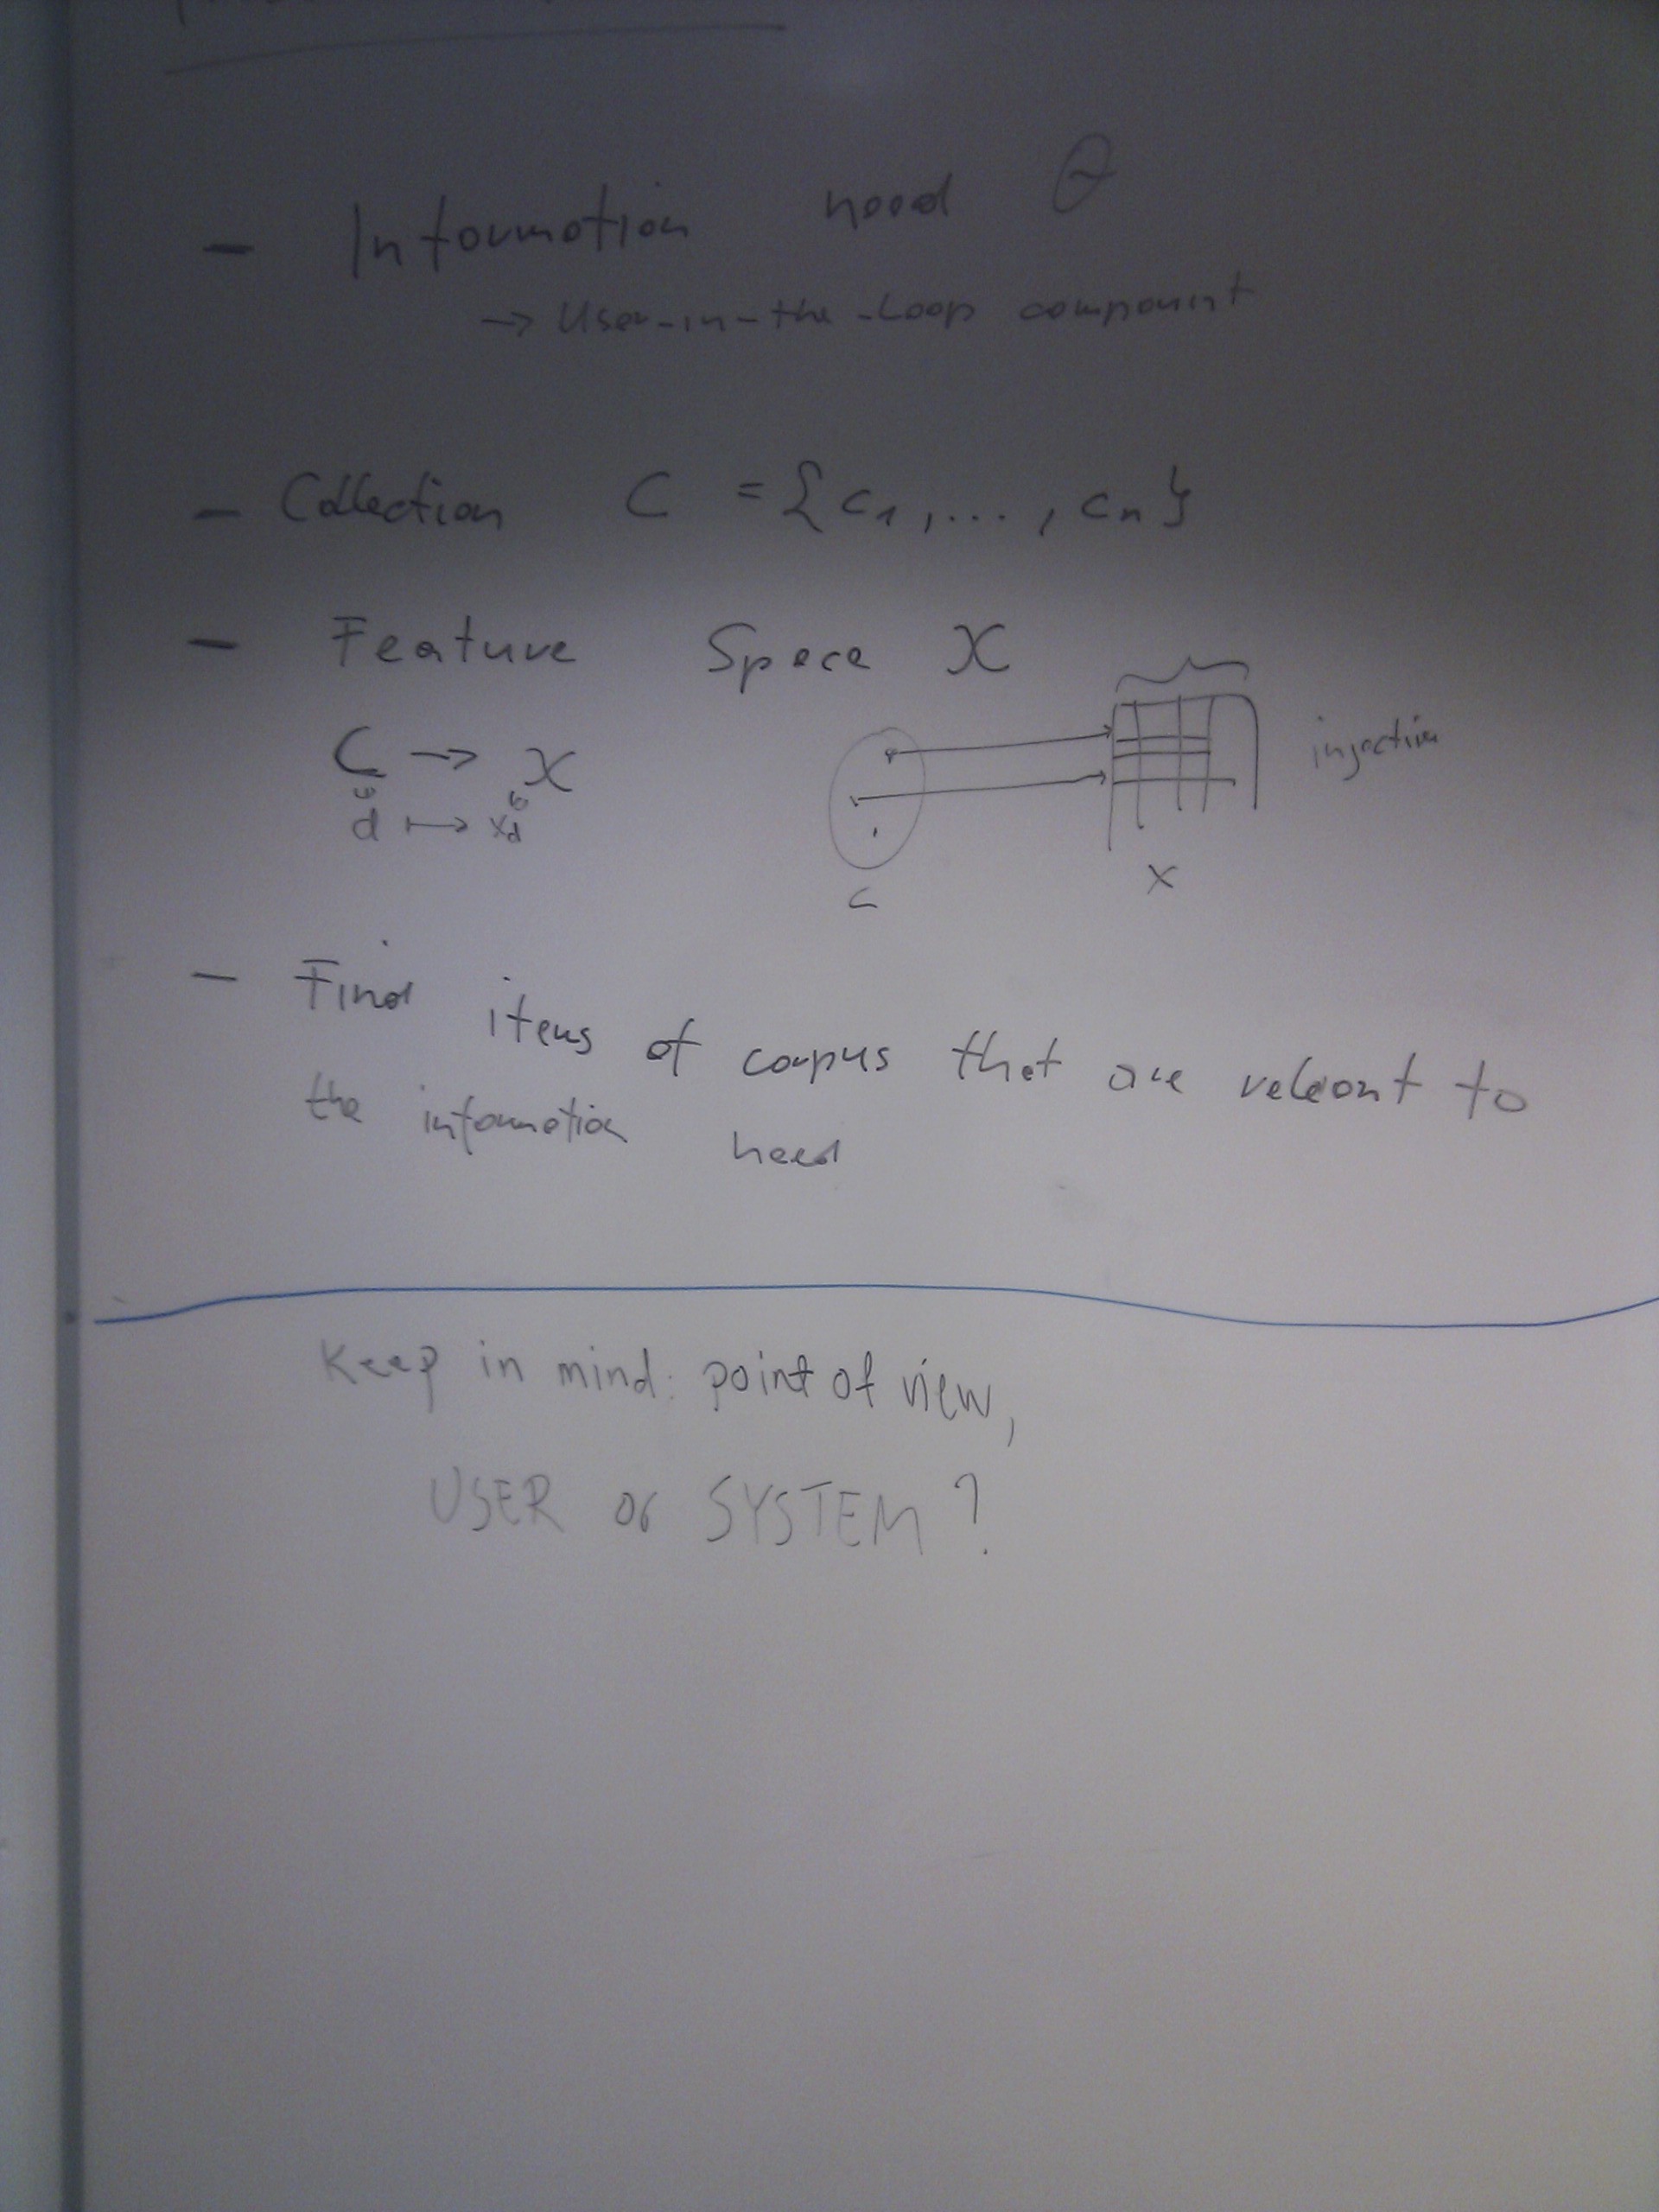 - Information need θ
→ User-in-the-Loop component
- Collection C = {c₁, ..., cₙ}
- Feature Space X
C → X
d ↦ x_d
injective
C
X
- Find items of corpus that are relevant to
the information need
Keep in mind: point of view,
USER or SYSTEM?